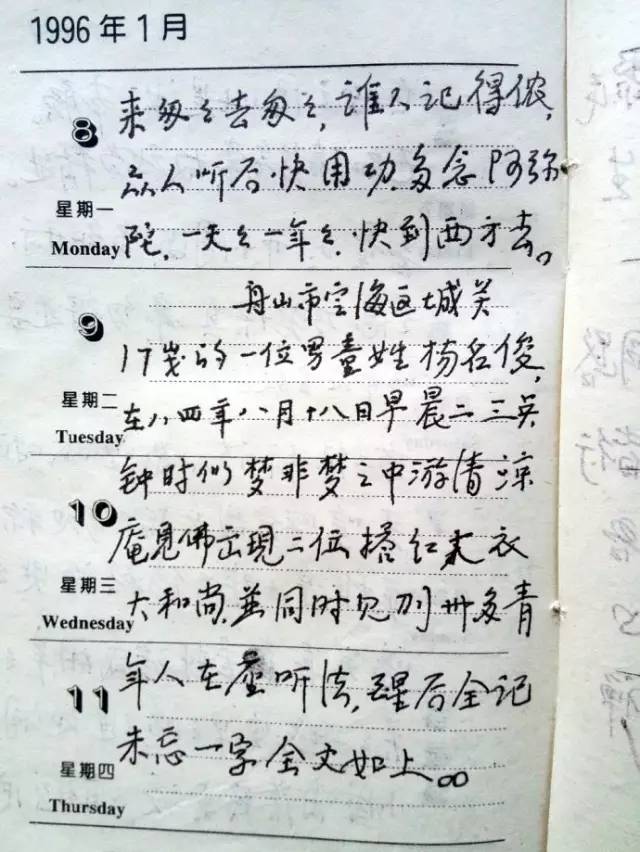 1996年1月
8
星期一
Monday
来匆匆去匆匆,谁人记得侬,
众人听后快用功,多念阿弥
陀,一天々一年々,快到西方去。
9
星期二
Tuesday
舟山市定海区城关
17岁的一位男童姓杨名俊,
在八四年八月十八日早晨二三点
钟时似梦非梦之中游清凉
10
星期三
Wednesday
庵见佛出現二位搭红衣
大和尚,并同时见到卅多青
11
星期四
Thursday
年人在座听法,醒后全记
未忘一字全文如上。